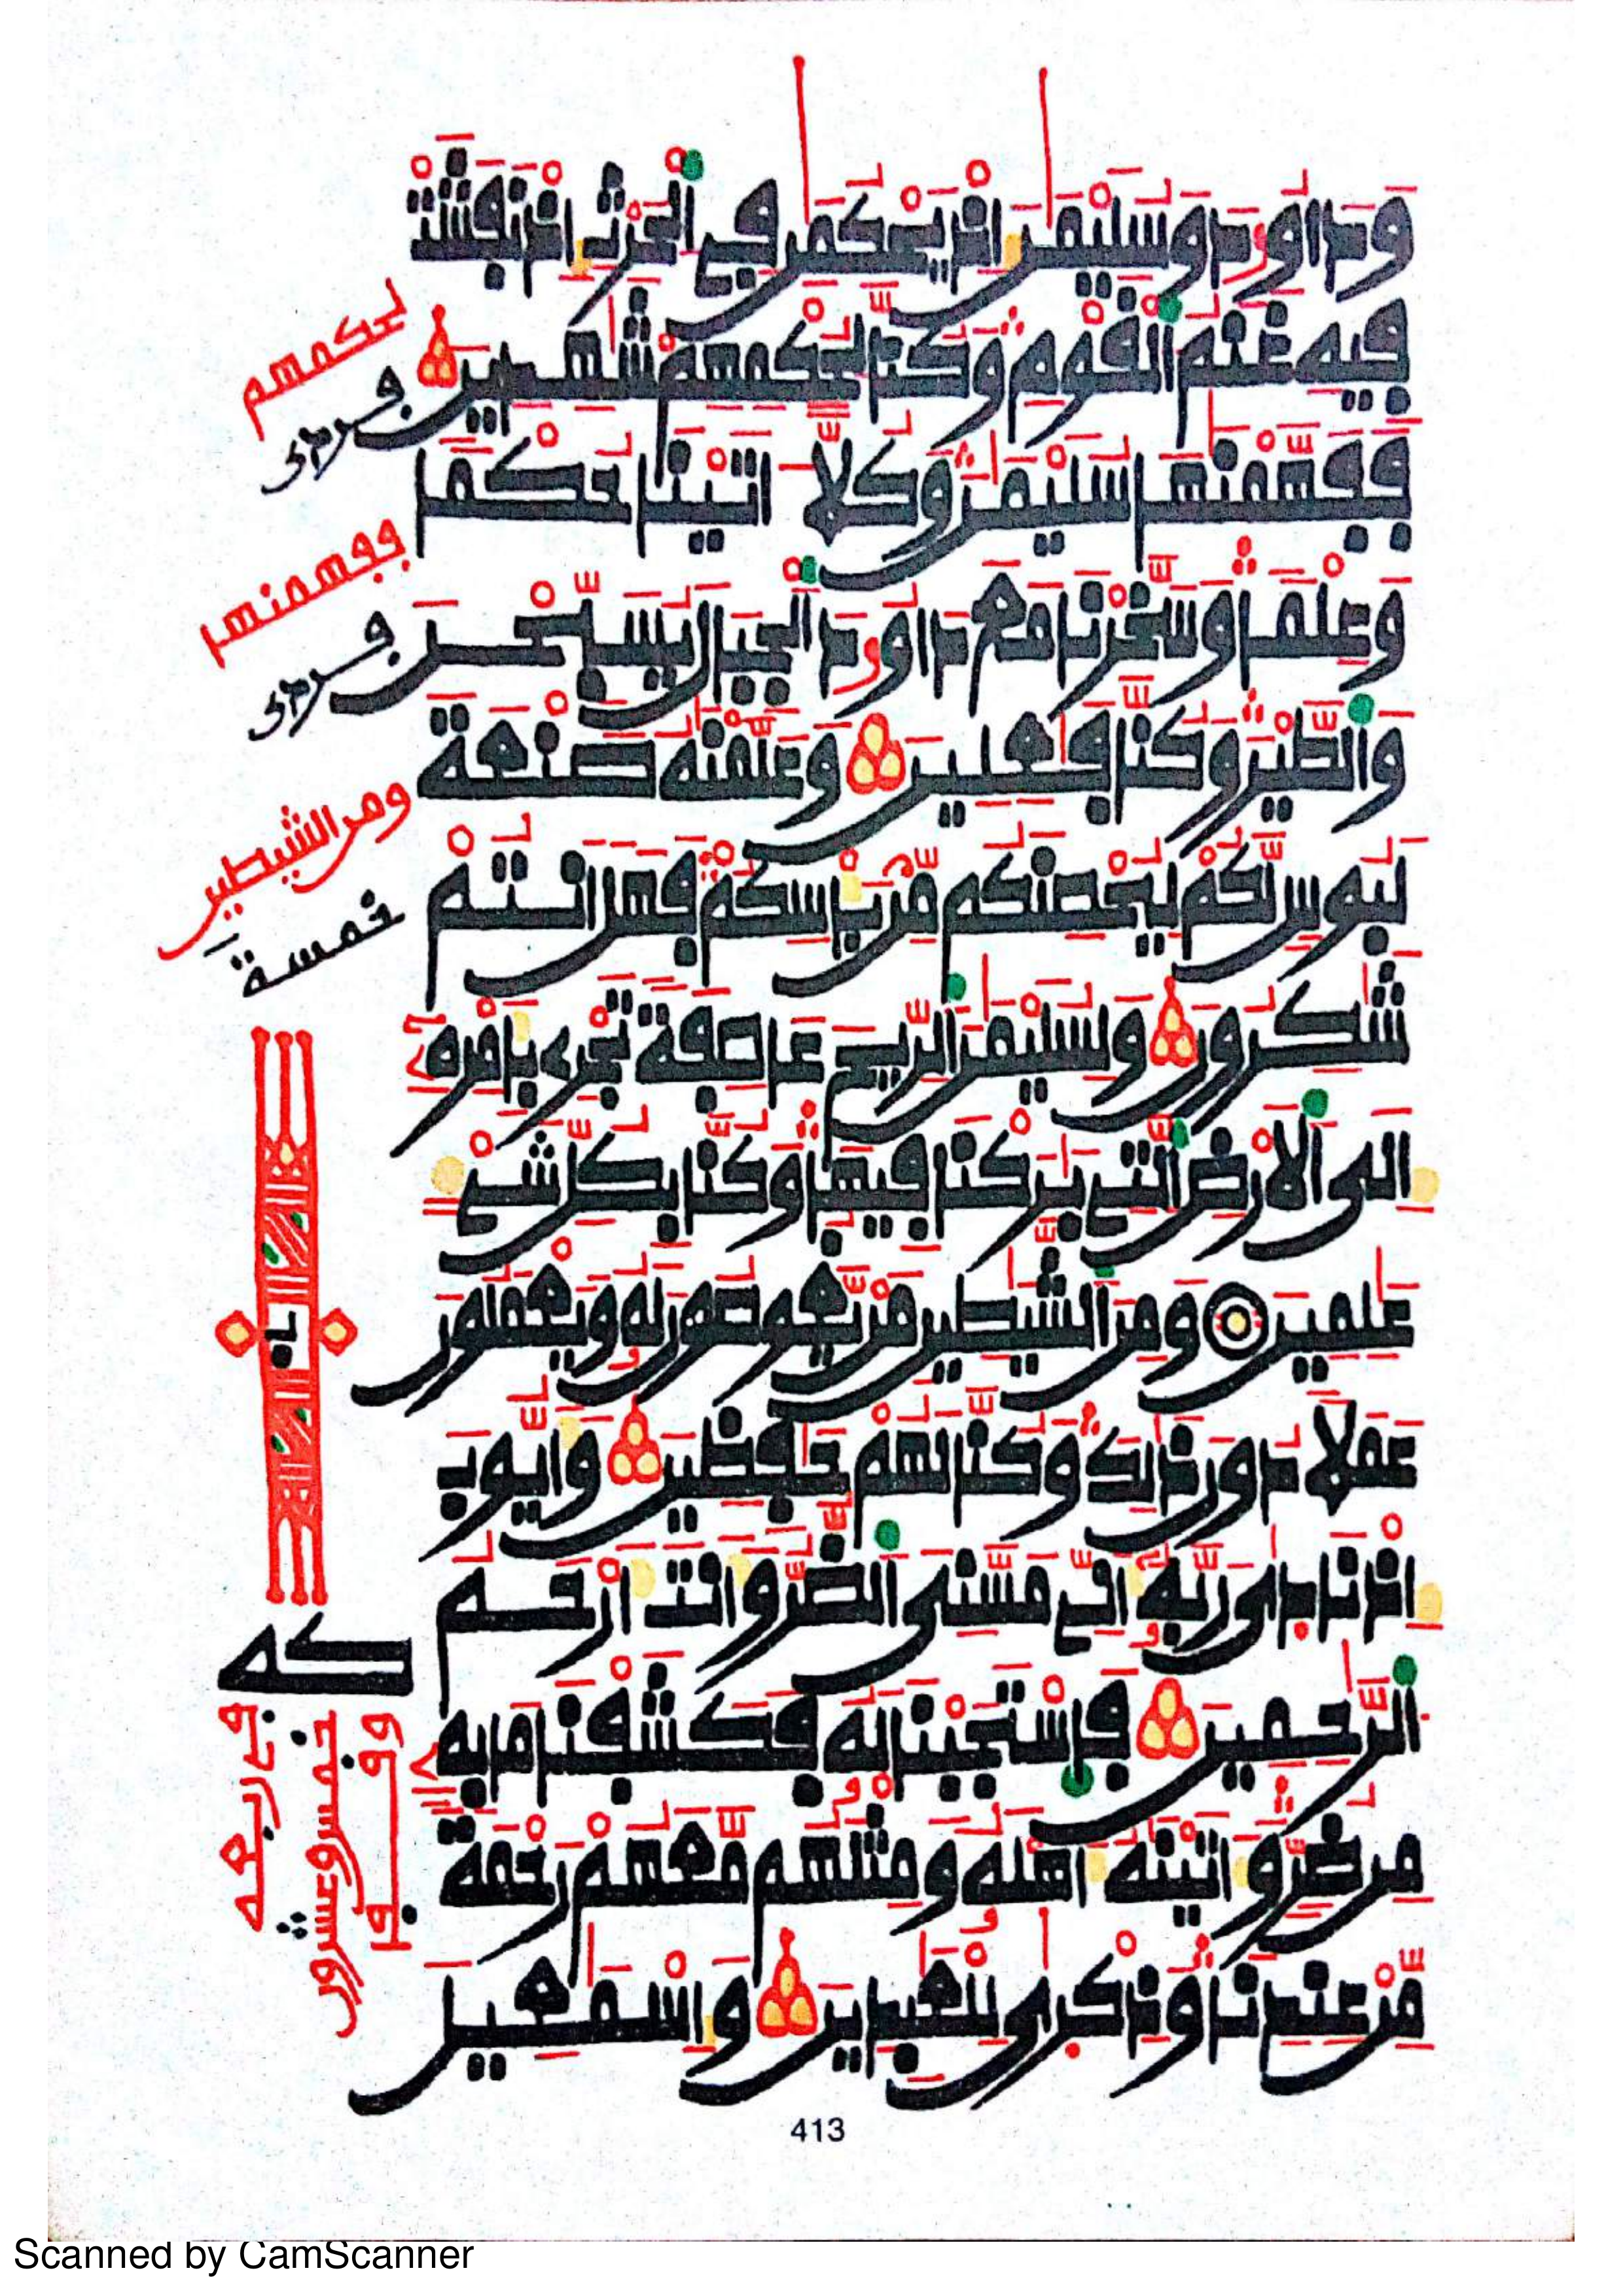 وداود وسليمن اذ يحكمن في الحرث اذ نفشت
فيه غنم القوم وكنا لحكمهم شهدين
ففهمنها سليمن وكلا اتينا حكما
وعلما وسخرنا مع داود الجبال يسبحن
والطير وكنا فعلين وعلمنه صنعة
لبوس لكم ليحصنكم من باسكم فهل انتم
شكرون ولسليمن الريح عاصفة تجري بامره
الى الارض التي بركنا فيها وكنا بكل شيء
علمين ومن الشيطين من يغوصون له ويعملون
عملا دون ذلك وكنا لهم حفظين وايوب
اذ نادى ربه اني مسني الضر وانت ارحم
الرحمين فاستجبنا له فكشفنا ما به
من ضر واتينه اهله ومثلهم معهم رحمة
من عندنا وذكرى للعبدين واسمعيل
لحكمهم
ففهمنها
ومن الشيطين
خمسة
خمس وعشرون
413
Scanned by CamScanner